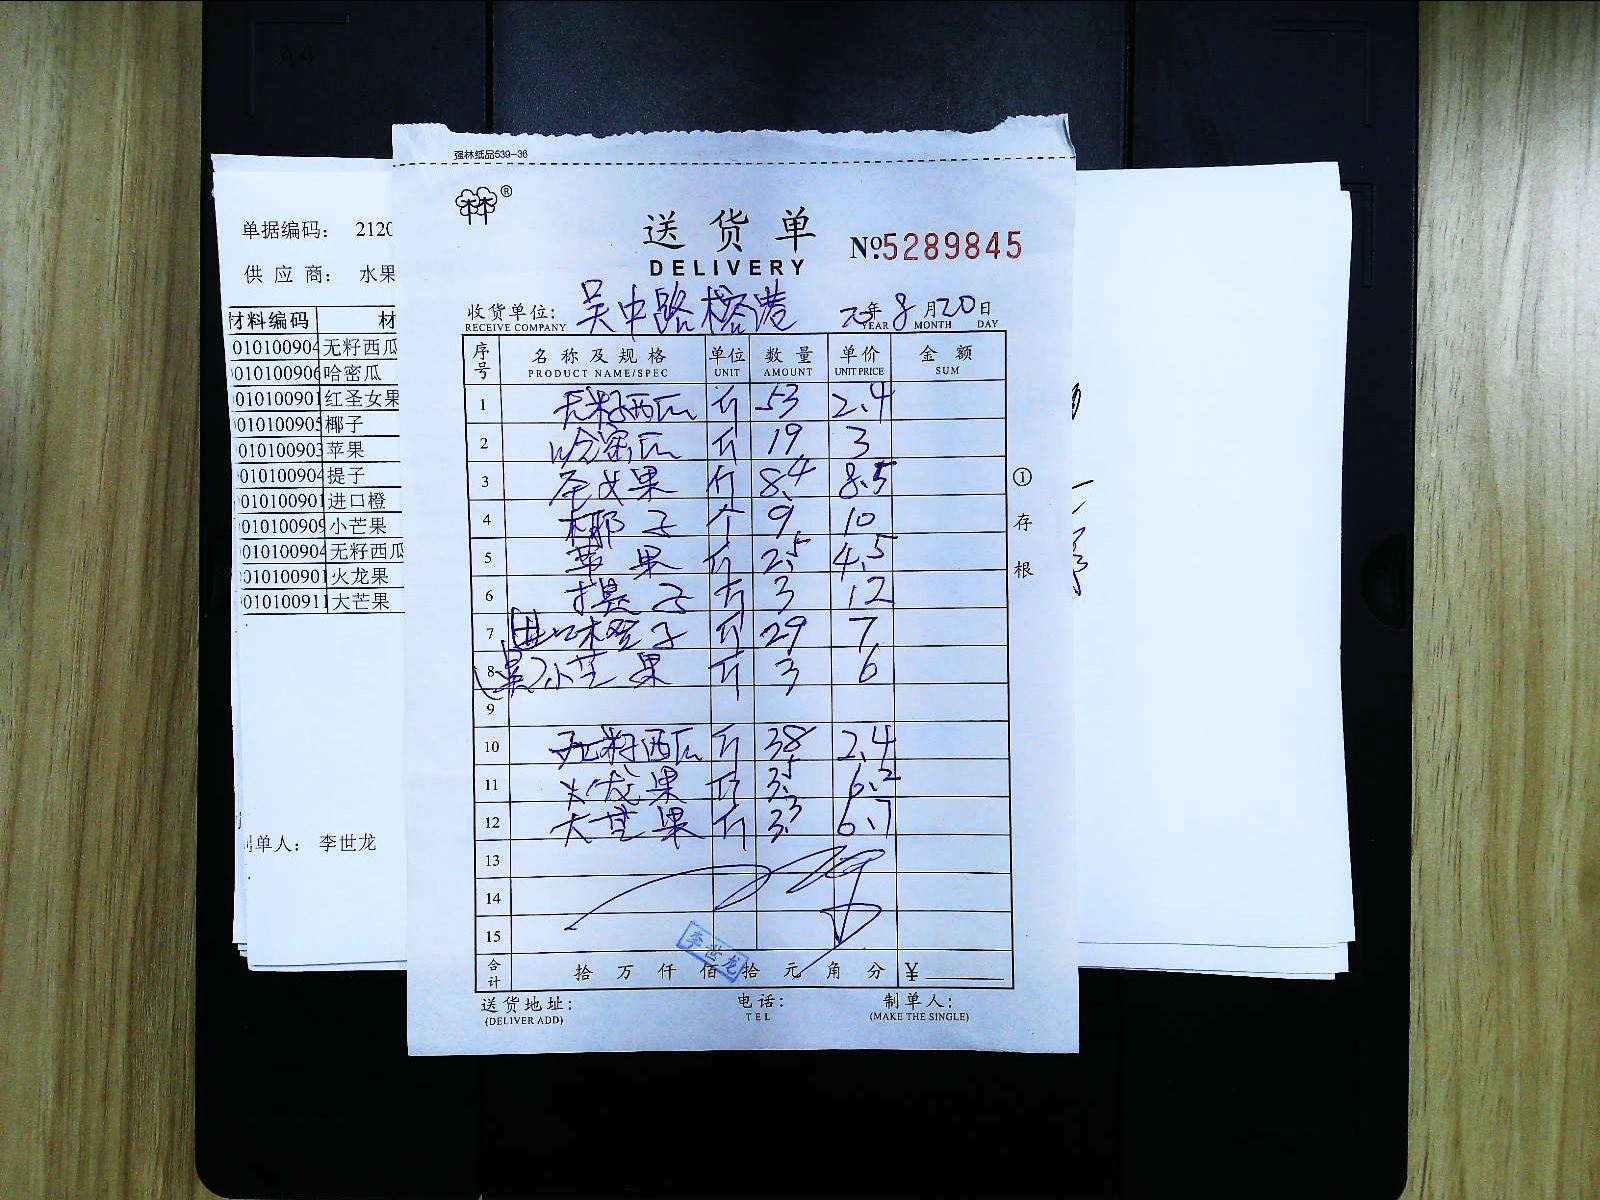 强林纸品539-36
林林®
送货单
DELIVERY
№5289845
收货单位: 吴中路榕港 年8月20日
RECEIVE COMPANY YEAR MONTH DAY
序号 名称及规格 单位 数量 单价 金额
PRODUCT NAME/SPEC UNIT AMOUNT UNIT PRICE SUM
1 无籽西瓜 斤 53 2.4
2 哈密瓜 斤 19 3
3 圣女果 斤 8.4 8.5
4 椰子 个 9 10
5 苹果 斤 2.5 4.5
6 提子 斤 3 12
7 进口橙子 斤 29 7
8 小芒果 斤 3 6
9
10 无籽西瓜 斤 38 2.4
11 火龙果 斤 3.5 6.2
12 大芒果 斤 3.3 6.7
13
14
15
李世龙
合计 拾万仟佰拾元角分 ¥
送货地址: 电话: 制单人:
(DELIVER ADD) TEL (MAKE THE SINGLE)
①存根
单据编码: 2120
供应商: 水果
材料编码 材
010100904 无籽西瓜
010100906 哈密瓜
010100901 红圣女果
010100905 椰子
010100903 苹果
010100904 提子
010100901 进口橙
010100909 小芒果
010100904 无籽西瓜
010100901 火龙果
010100911 大芒果
制单人: 李世龙